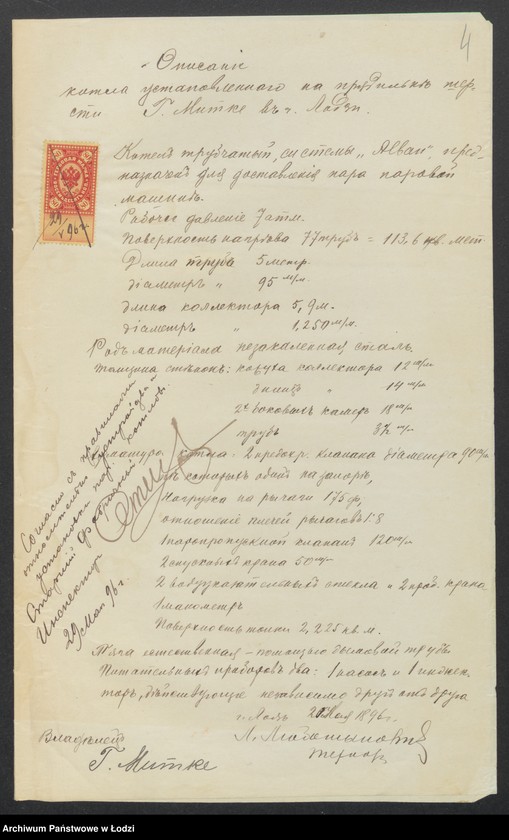 4
Описаніе
котла установленнаго на прядильнѣ шер-
сти Г. Митке въ г. Лодзи.
Котелъ трубчатый, системы „Alban", пред-
назначенъ для доставленія пара паровой
машинѣ.
Рабочее давленіе 7 атм.
Поверхность нагрѣва 77 трубъ = 113,6 кв. мет.
Длина трубъ 5 метр.
діаметръ „ 95 м/м.
Длина коллектора 5,9 м.
діаметръ „ 1,250 м/м.
Родъ матеріала незакаленная сталь.
Толщина стѣнокъ: кожуха коллектора 12 м/м
днищъ „ 14 м/м
2хъ боковыхъ камеръ 18 м/м
трубъ 3½ м/м
Арматура котла: 2 предохр. клапана діаметра 90 м/м
изъ которыхъ одинъ на запорѣ,
Нагрузка на рычаги 175 ф,
отношеніе плечей рычаговъ 1:8
1 паропропускной клапанъ 120 м/м
2 спускныхъ крана 50 м/м
2 водоуказательныхъ стекла и 2 проб. крана
1 манометръ
Поверхность топки 2,225 кв. м.
Тяга естественная – помощью дымовой трубы
Питательныхъ приборовъ два: 1 насосъ и 1 инжек-
торъ, дѣйствующіе независимо другъ отъ друга
г. Лодзь 20 Мая 1896 г.
Владѣлецъ
Г. Митке
Согласно съ правилами
относительно устройства и
установки пар. котловъ.
Старшій Фабричный
Инспекторъ
29 Мая 96 г.
29
V 96 г.
Archiwum Państwowe w Łodzi